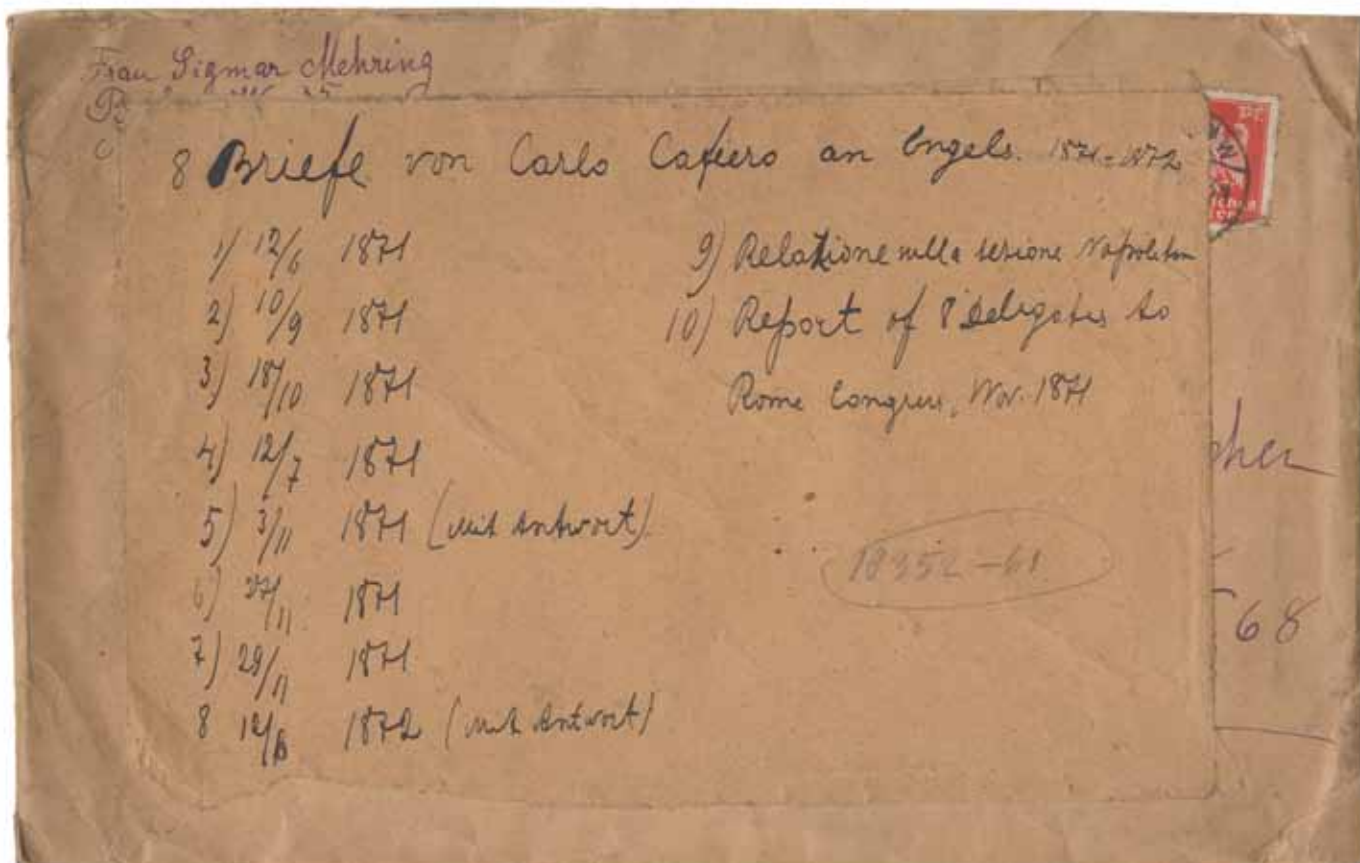 Frau Sigmar Mehring
8 Briefe von Carlo Cafiero an Engels. 1871-1872
1) 12/6 1871
2) 10/9 1871
3) 18/10 1871
4) 12/7 1871
5) 3/11 1871 (mit Antwort).
6) 27/11 1871
7) 29/11 1871
8 12/6 1872 (mit Antwort)
9) Relazione sulla sezione Napoletan
10) Report of 8 Delegates to
Rome Congress, Nov. 1871
18352-61
cher
68